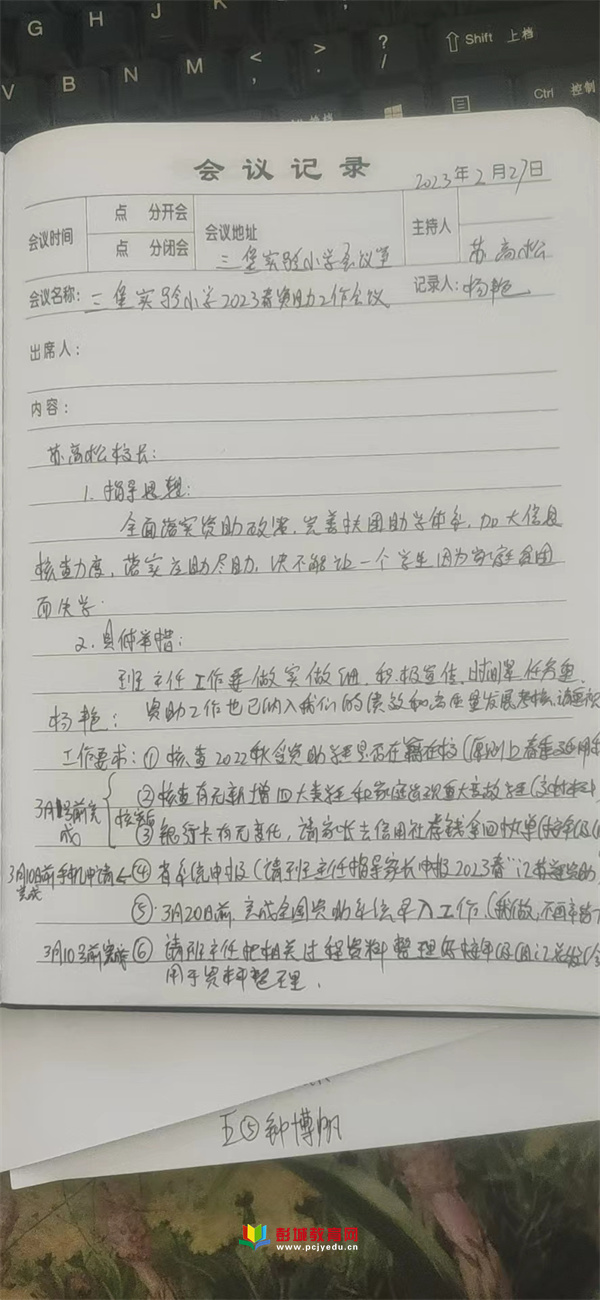 G H J K L
Shift 上档
V B N M < , > . ? /
Ctrl 控制
会议记录
2023年2月27日
会议时间 点 分开会 会议地址 主持人
点 分闭会 三堡实验小学会议室 苏高松
会议名称: 三堡实验小学2023春资助工作会议 记录人: 杨艳
出席人:
内容:
苏高松校长:
1. 指导思想:
全面落实资助政策,完善扶困助学体系,加大信息
核查力度,落实应助尽助,决不能让一个学生因为家庭贫困
而失学.
2. 具体举措:
班主任工作要做实做细,积极宣传,时间紧任务重.
杨艳: 资助工作也已纳入我们的绩效和高质量发展考核,请重视
工作要求: ① 核查2022秋受资助学生是否在籍在校(原则上春季延用秋
3月1号前完成 ② 核查有无新增四大类生和家庭出现重大变故学生(
③ 银行卡有无变化,请家长去信用社存钱拿回执单(
3月10日前完成 手机申请← ④ 省系统申报(请班主任指导家长申报2023春"江苏
⑤ 3月20日前,完成全国资助系统录入工作.(我做,
3月10号前完成 ⑥ 请班主任把相关过程资料整理好按年级
用于资料整理.
五⑤ 钟博帆
彭城教育网
www.pcjyedu.cn